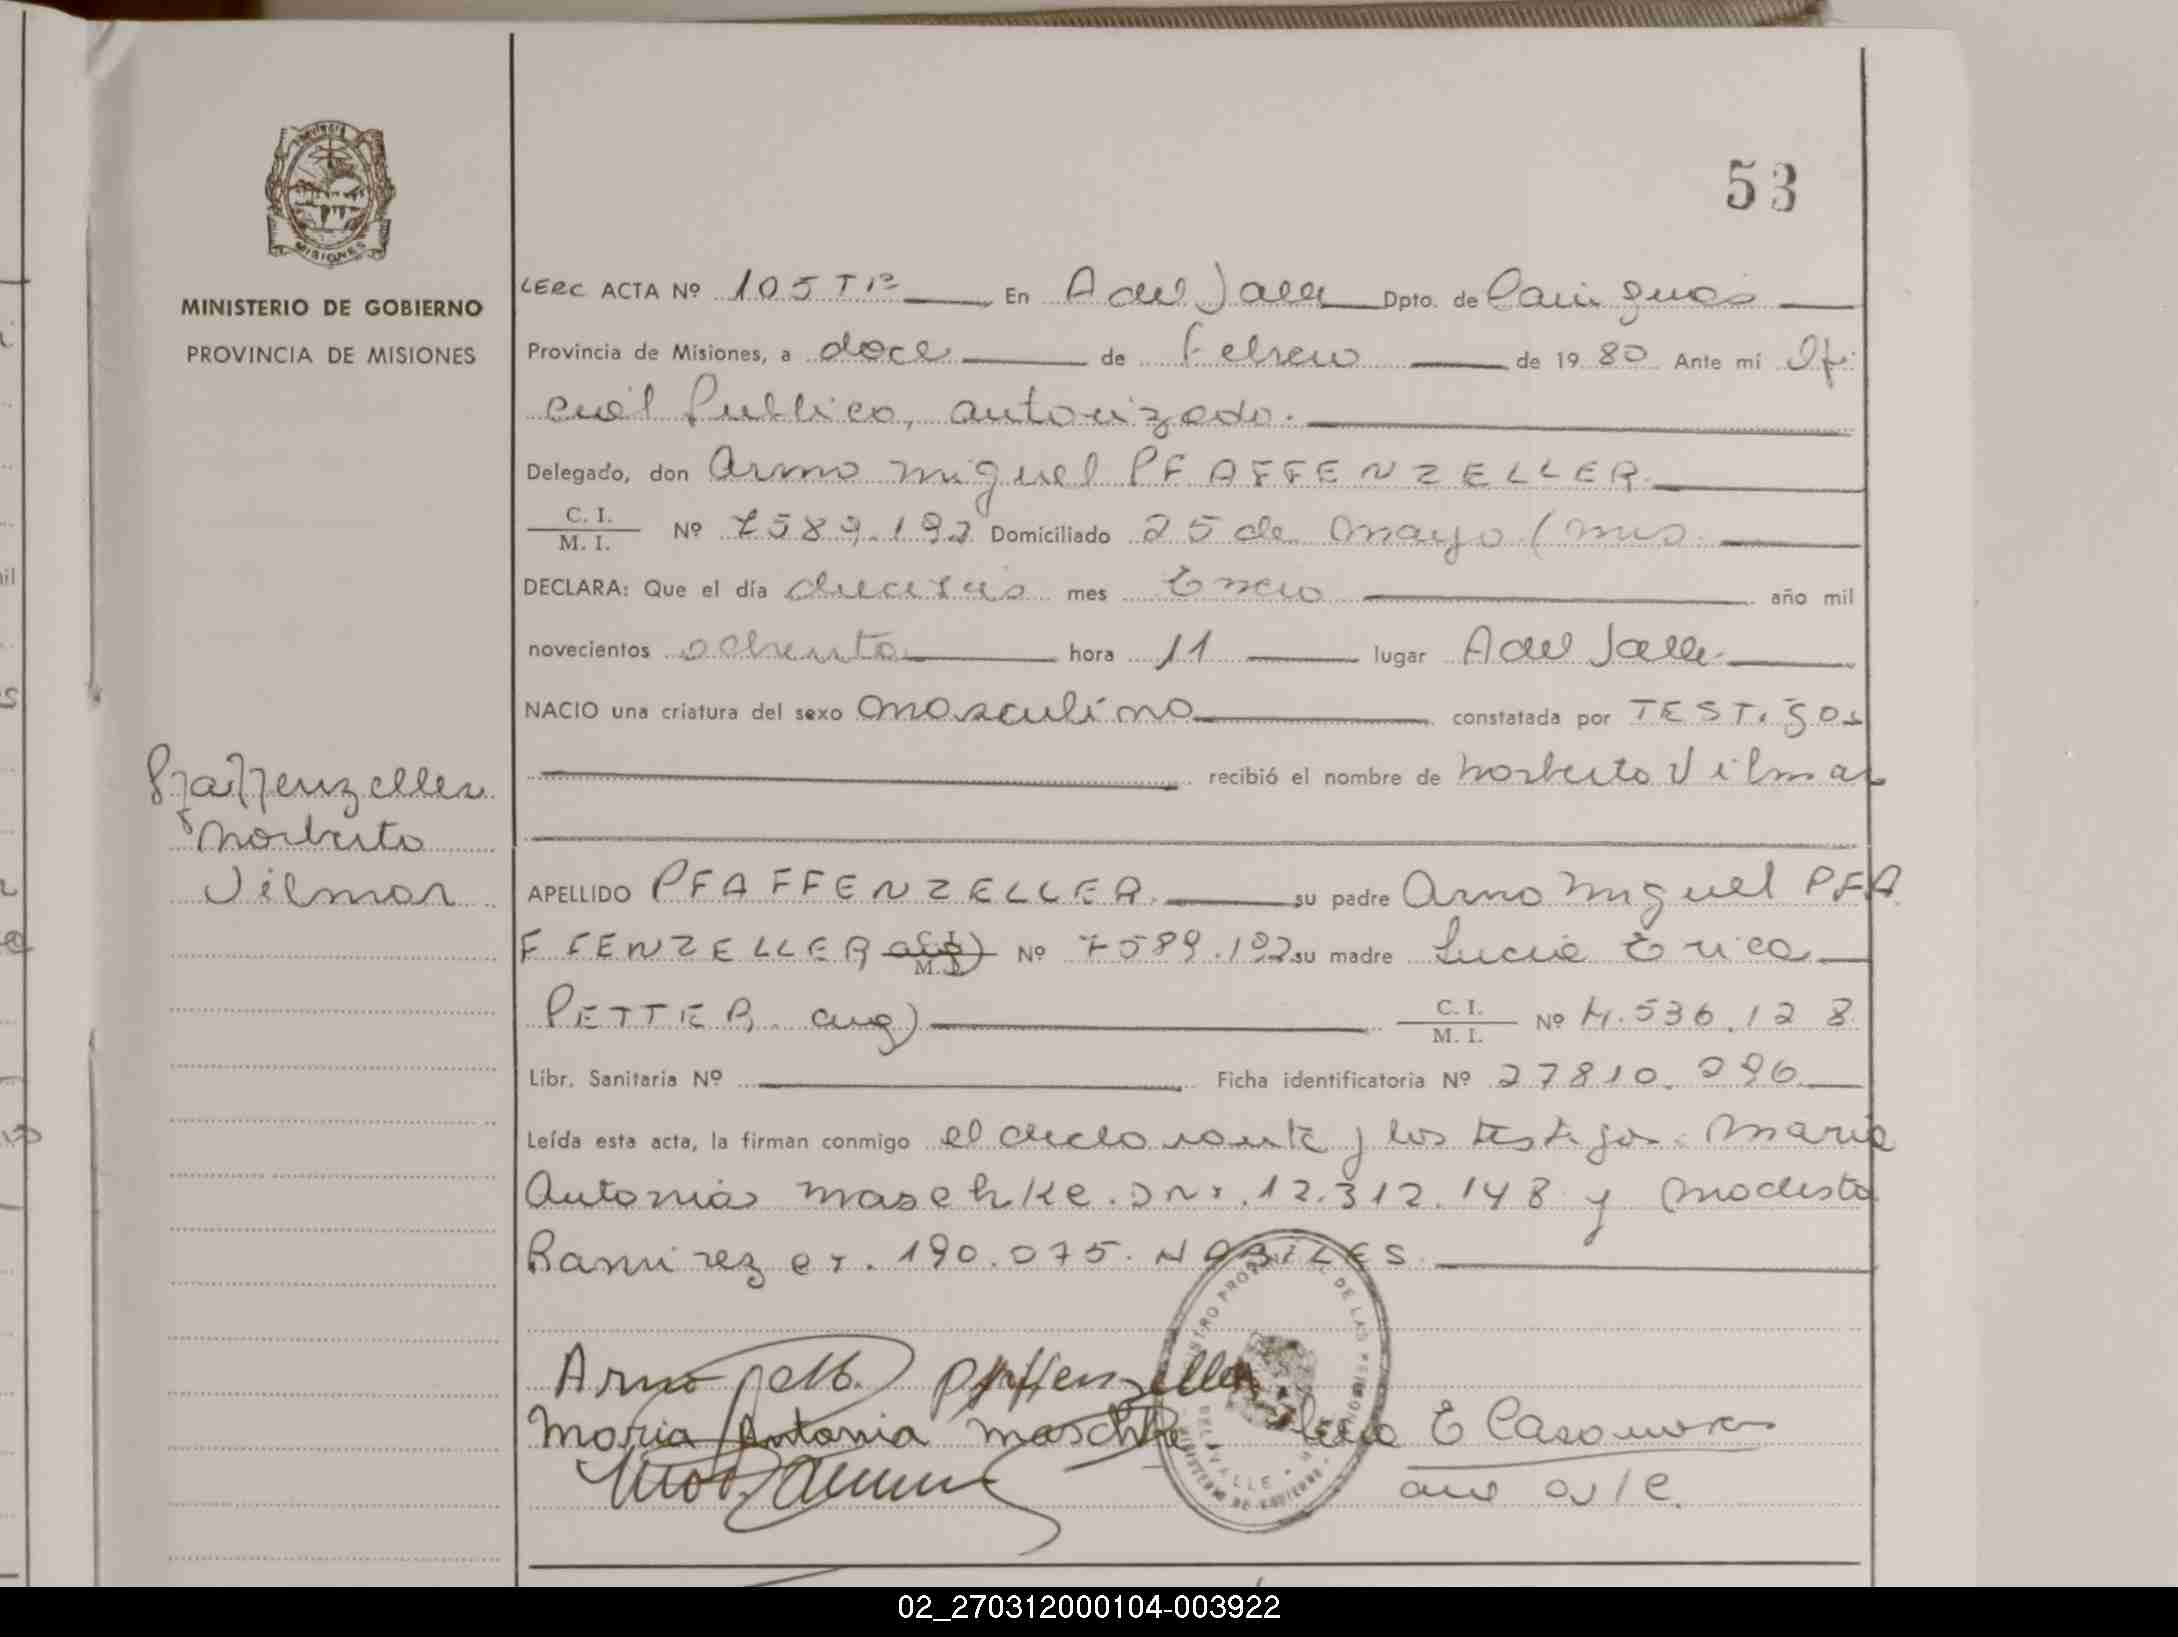 53
MINISTERIO DE GOBIERNO
PROVINCIA DE MISIONES
LERC ACTA Nº 105 Tº En A del Valle Dpto. de Cainguas
Provincia de Misiones, a doce de Febrero de 19 80 Ante mi Ofi
cial Publico, autorizado.
Delegado, don Arno Miguel PFAFFENZELLER
C. I.
M. I. Nº 7589.192 Domiciliado 25 de Mayo (Mis
DECLARA: Que el día dieciseis mes Enero año mil
novecientos ochenta hora 11 lugar A del Valle
NACIO una criatura del sexo masculino constatada por TESTigos
recibió el nombre de Norberto Vilmar
Pfaffenzeller
Norberto
Vilmar
APELLIDO PFAFFENZELLER su padre Arno Miguel PFA
FFENZELLER arg) Nº 7589.192 su madre Lucia Erica
PETTER. arg) C. I. M. I. Nº 4.536.128
Libr. Sanitaria Nº Ficha identificatoria Nº 27810.296
Leída esta acta, la firman conmigo el declarante y los testigos. Maria
Antonia Maschke. DNI. 12.312.148 y Modesto
Ramirez 190.075. HABILES
Arno Pfaffenzeller
Maria Antonia Maschke
E Casanova
MISIONES
02_270312000104-003922